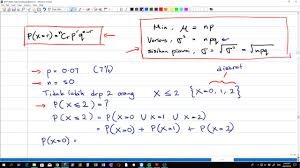 P(X=r) = ⁿCᵣ pʳ qⁿ⁻ʳ
Min, μ = np
Varians, σ² = npq
Sisihan piawai, σ = √σ² = √npq
→ p = 0.07 (7%)
→ n = 50
diskret
Tidak lebih drp 2 orang X ≤ 2 {X=0, 1, 2}
P(X ≤ 2) ?
P(X ≤ 2) = P(X=0 ∪ X=1 ∪ X=2)
= P(X=0) + P(X=1) + P(X=2)
P(X=0) =